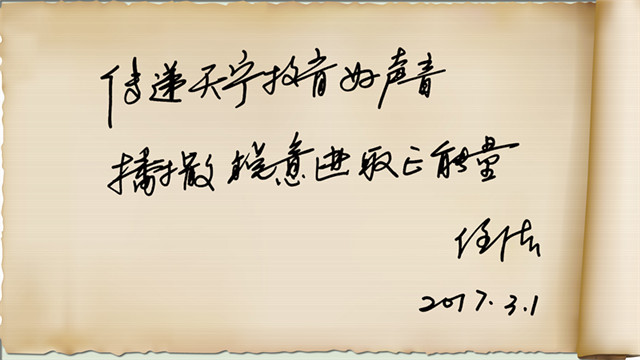 传递天宁教育好声音
播撒锐意进取正能量
2017.3.1